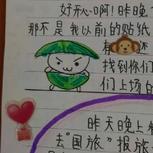 好开心啊!昨晚
那不是我以前的贴纸
还
找到你们
们上场的
昨天晚上
去“国旅”报旅